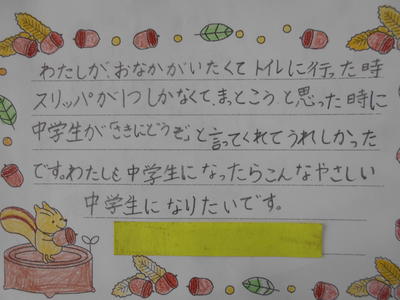 わたしが、おなかがいたくてトイレに行った時
スリッパが1つしかなくて、まっとこうと思った時に
中学生が「さきにどうぞ」と言ってくれてうれしかった
です。わたしも中学生になったらこんなやさしい
中学生になりたいです。